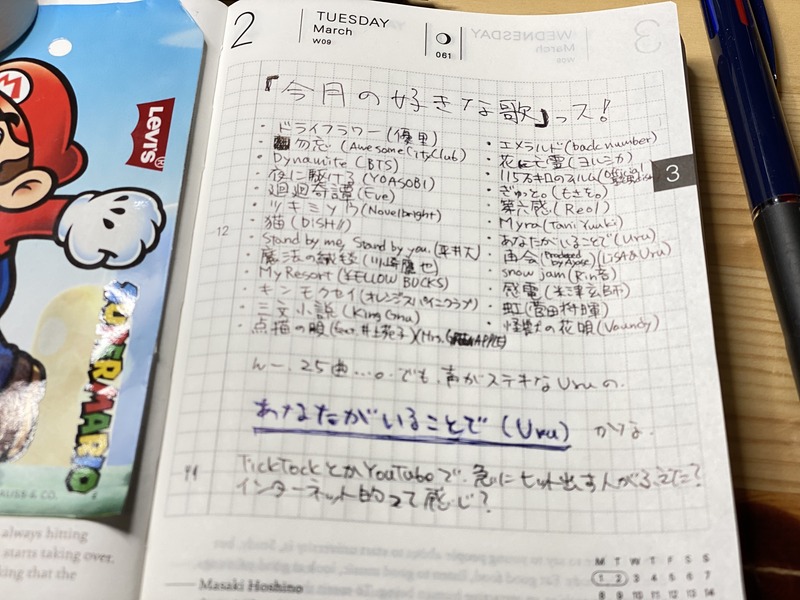 LEVI'S
SUPER MARIO
USS & CO.
always hitting
starts taking over.
king that the
2
TUESDAY
March
W09
061
WEDNESDAY
March
3
3
「今月の好きな歌」っス!
・ドライフラワー(優里)
・勿忘(Awesome City Club)
・Dynamite (BTS)
・夜に駆ける(YOASOBI)
・廻廻奇譚(Eve)
・ツキミソウ(Novelbright)
12
・猫(DISH//)
・Stand by me, Stand by you.(平井大)
・魔法の絨毯(川崎鷹也)
・My Resort (¥ELLOW BUCKS)
・キンモクセイ(オレンジスパイニクラブ)
・三文小説(King Gnu)
・点描の唄(feat.井上苑子)(Mrs. GREEN APPLE)
・エメラルド(back number)
・花に亡霊(ヨルシカ)
・115万キロのフィルム
・ぎゅっと。(もさを。)
・第六感(Reol)
・Myra(Tani Yuuki)
・あなたがいることで(Uru)
・再会(Produced by Ayase)(LiSA&Uru)
・snow jam(Rin音)
・感電(米津玄師)
・虹(菅田将暉)
・怪獣の花唄(Vaundy)
んー、25曲…。でも、声がステキなUruの、
あなたがいることで(Uru) かな。
TickTockとかYouTubeで、急にヒット出す人がふえた?
インターネット的って感じ?
Masaki Hoshino
M T W T F S S
1 2 3 4 5 6 7
8 9 10 11 12 13 14